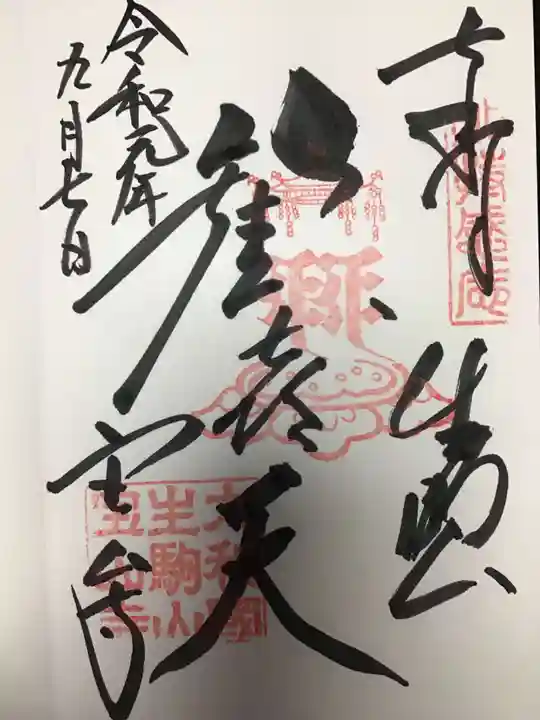 奉拝
生駒
歓喜天
宝山寺
令和元年
九月七日
大和國
生駒山
宝山寺